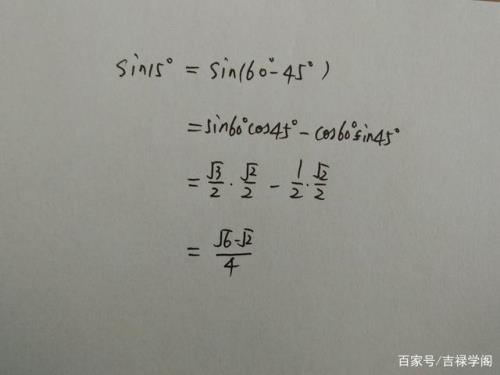 sin15° = sin(60°-45°)
=sin60°cos45°-cos60°sin45°
=√3/2·√2/2-1/2·√2/2
=(√6-√2)/4
百家号/吉禄学阁